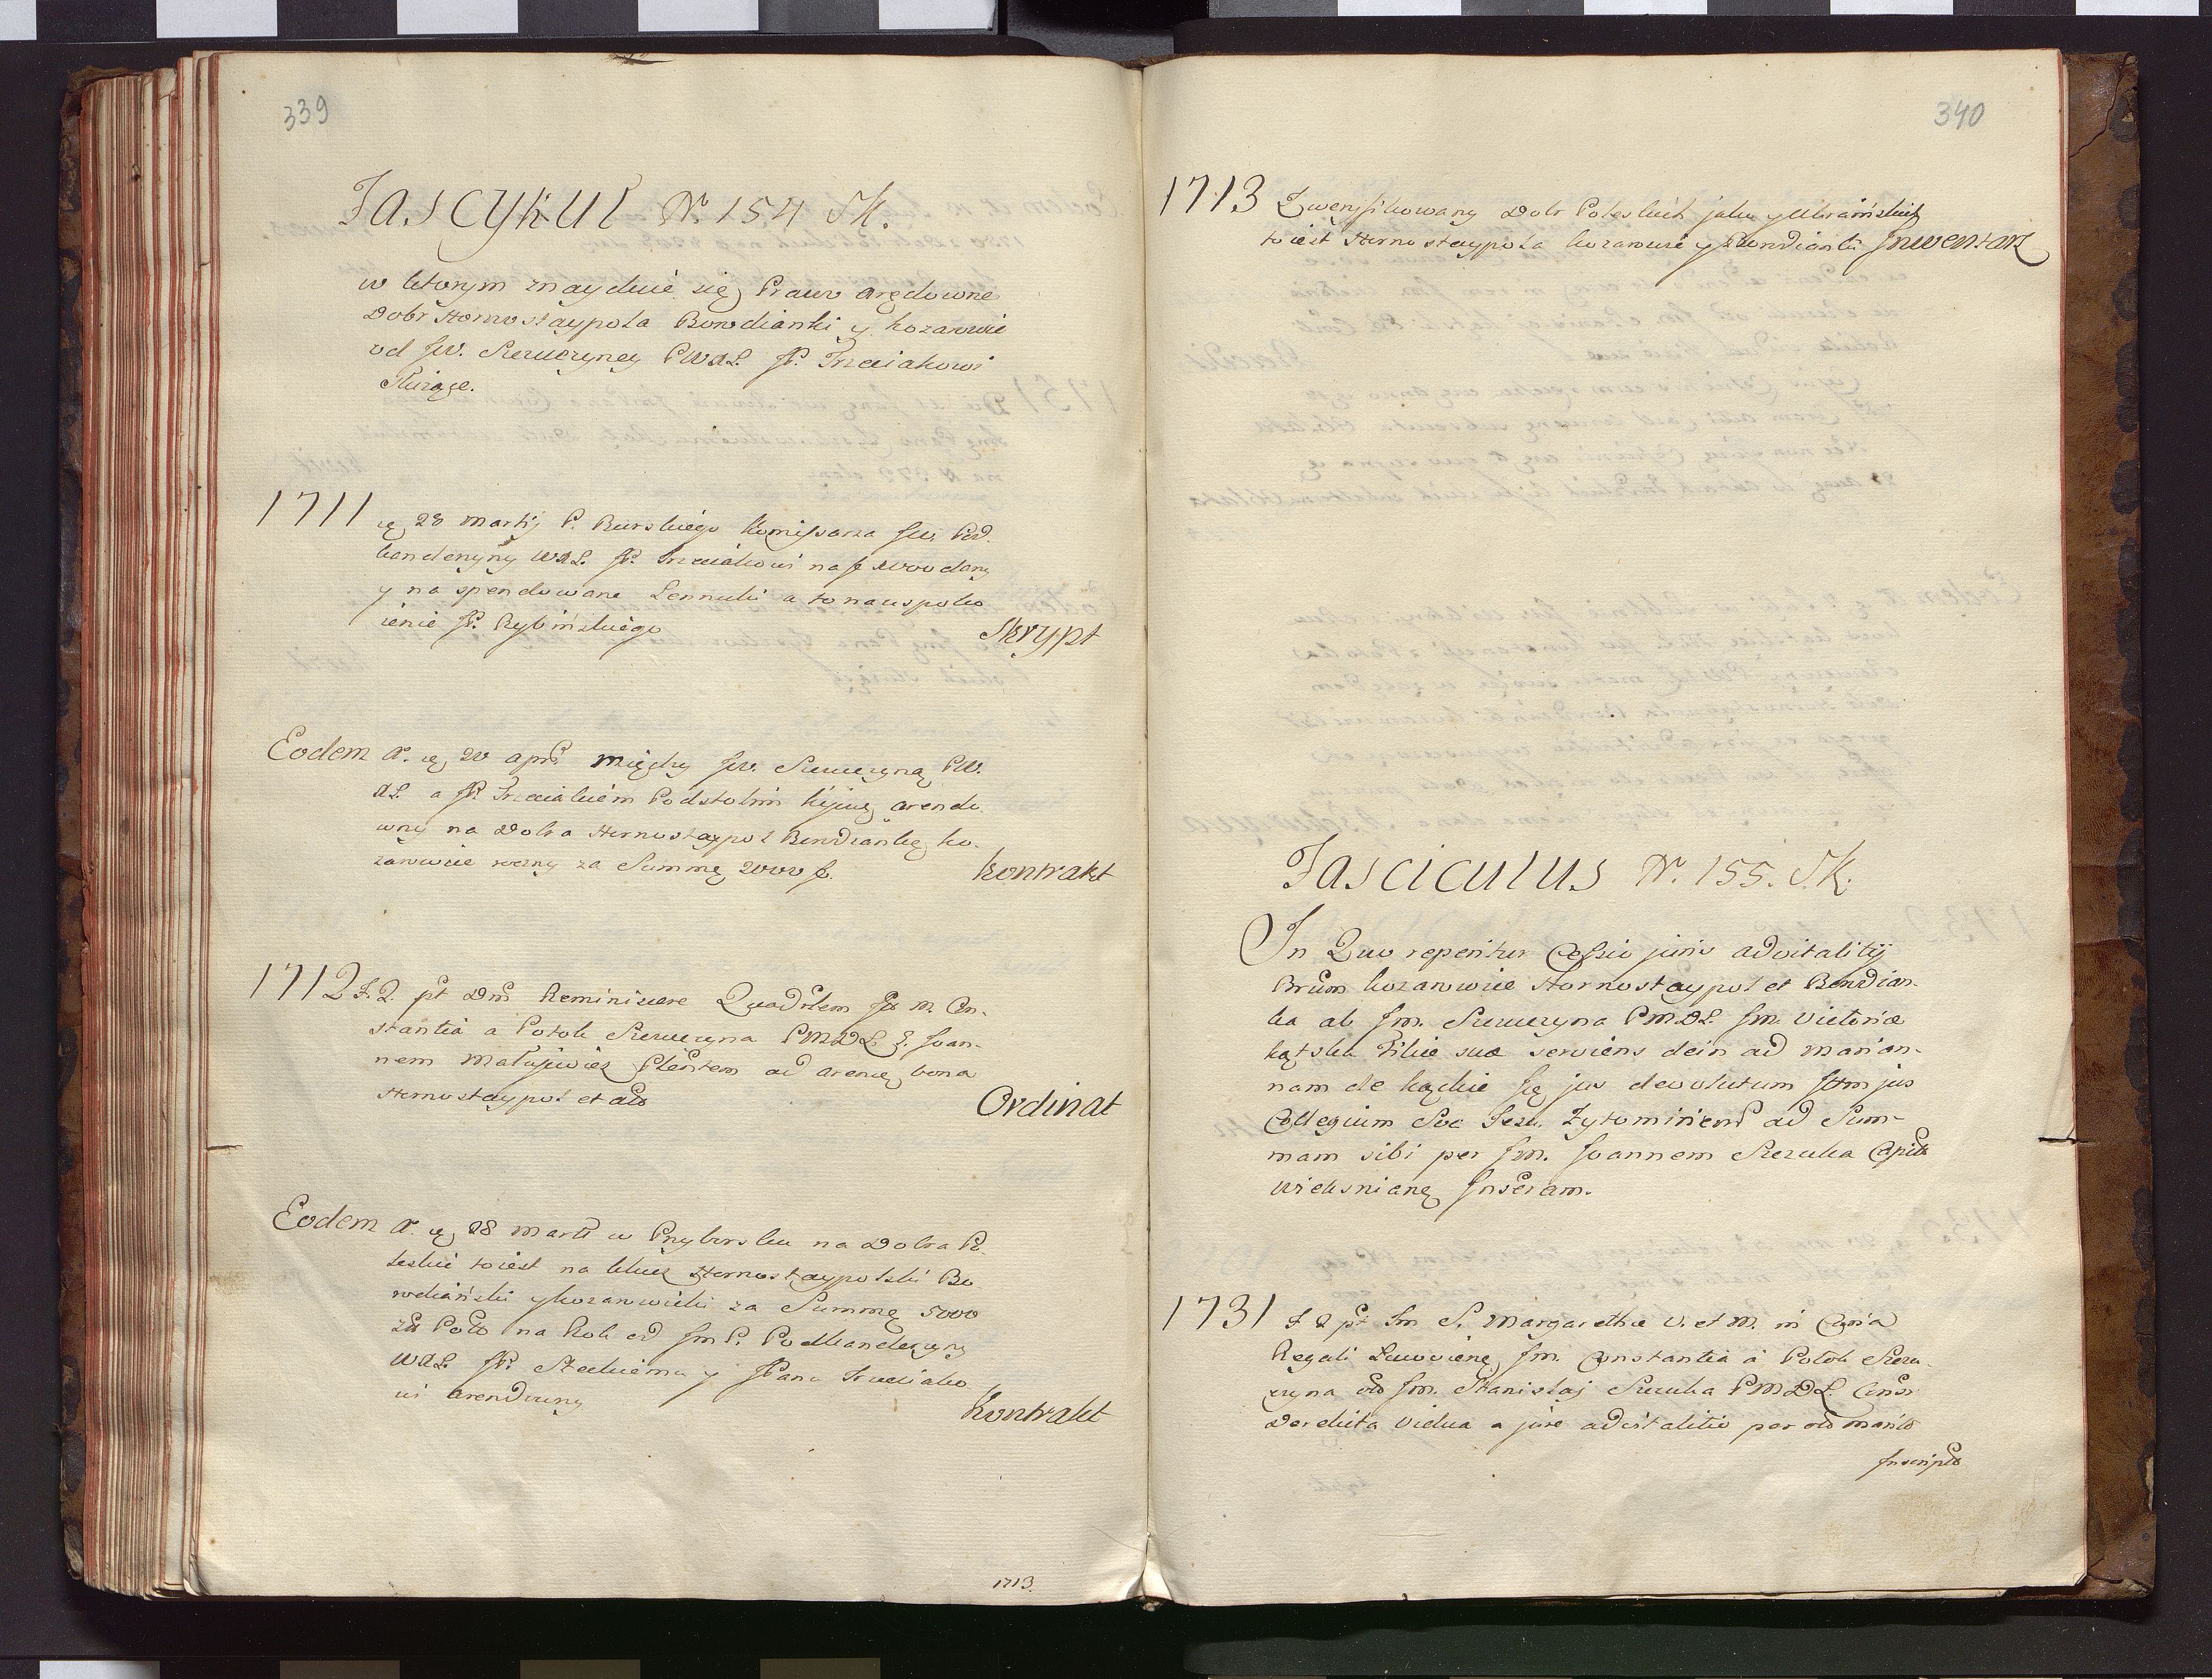 339
Fascykuł Nr. 154 SK.
w ktorym znayduie się Prawo Arędowne
Dobr Hornostaypola Borodianki y Kozarowic
od Jw. Szczuczyney PWXL JP. Trzeciakowi
służące.
1711 ą 28 Martij P. Burskiego Komissarza Jw. Pod
kanclerzyny WXL JP. Trzeciakowi na f dany
y na spendowane Lennuki a to na uspoko
ienie JP. Rybińskiego Skrypt
Eodem Ao. ą 20 apr. między Jw. Szczuczyną PW.
XL a JP. Trzeciakiem Podstolim Kijow. arendo
wny na Dobra Hornostaypol Borodiankę Ko-
zarowice roczny za Summę 2000 f. Kontrakt
1712 F. 2. pt Dnm Reminiscere Quadrlem Jw M. Con-
stantia a Potok Szczuczyna PMDL G. Joan-
nem Matujewicz Plentem ad arenę bona
Hornostaypol et ad Ordinat
Eodem Ao. ą 28 Martii w Przyborsku na Dobra Po-
leskie toiest na klucz Hornostaypolski Bo
rodiański y Kozarowicki za Summę 5000
zł Pol na Rok od Jm P. Podkanclerzyny
WXL JP. Steckiemu y JPanu Trzeciako
wi arendowny Kontrakt
1713.
340
1713 Zweryfikowany Dobr Poleskich jako y Ukraińskich
toiest Hornostaypola Kozarowic y Borodianki Inwentarz
Fasciculus Nr. 155. S.K.
In Quo reperitur Cessio juris advitalitij
Brum Kozarowice Hornostaypol et Borodian-
ka ab Jm. Szczuczyna PMDL Jm. Victoriæ
Kątska Filiæ suæ serviens dein ad Marian-
nam de Kąckie Ję jus devolutum Itm jus
Collegium Soc Jesu Zytomiriens ad Sum-
mam sibi per Jm. Joannem Szczuka Capit
Wieksnianę Inscram.
1731 F 2 pt Fm S. Margarethæ V. et M. in Curia
Regali Leuvoienę Jm. Constantia a Potok Szczu-
czyna olim Jm. Stanislaj Szczuka PMDL Consr
derelicta Vidua a jure advitalitio per olim marito
Inscripto